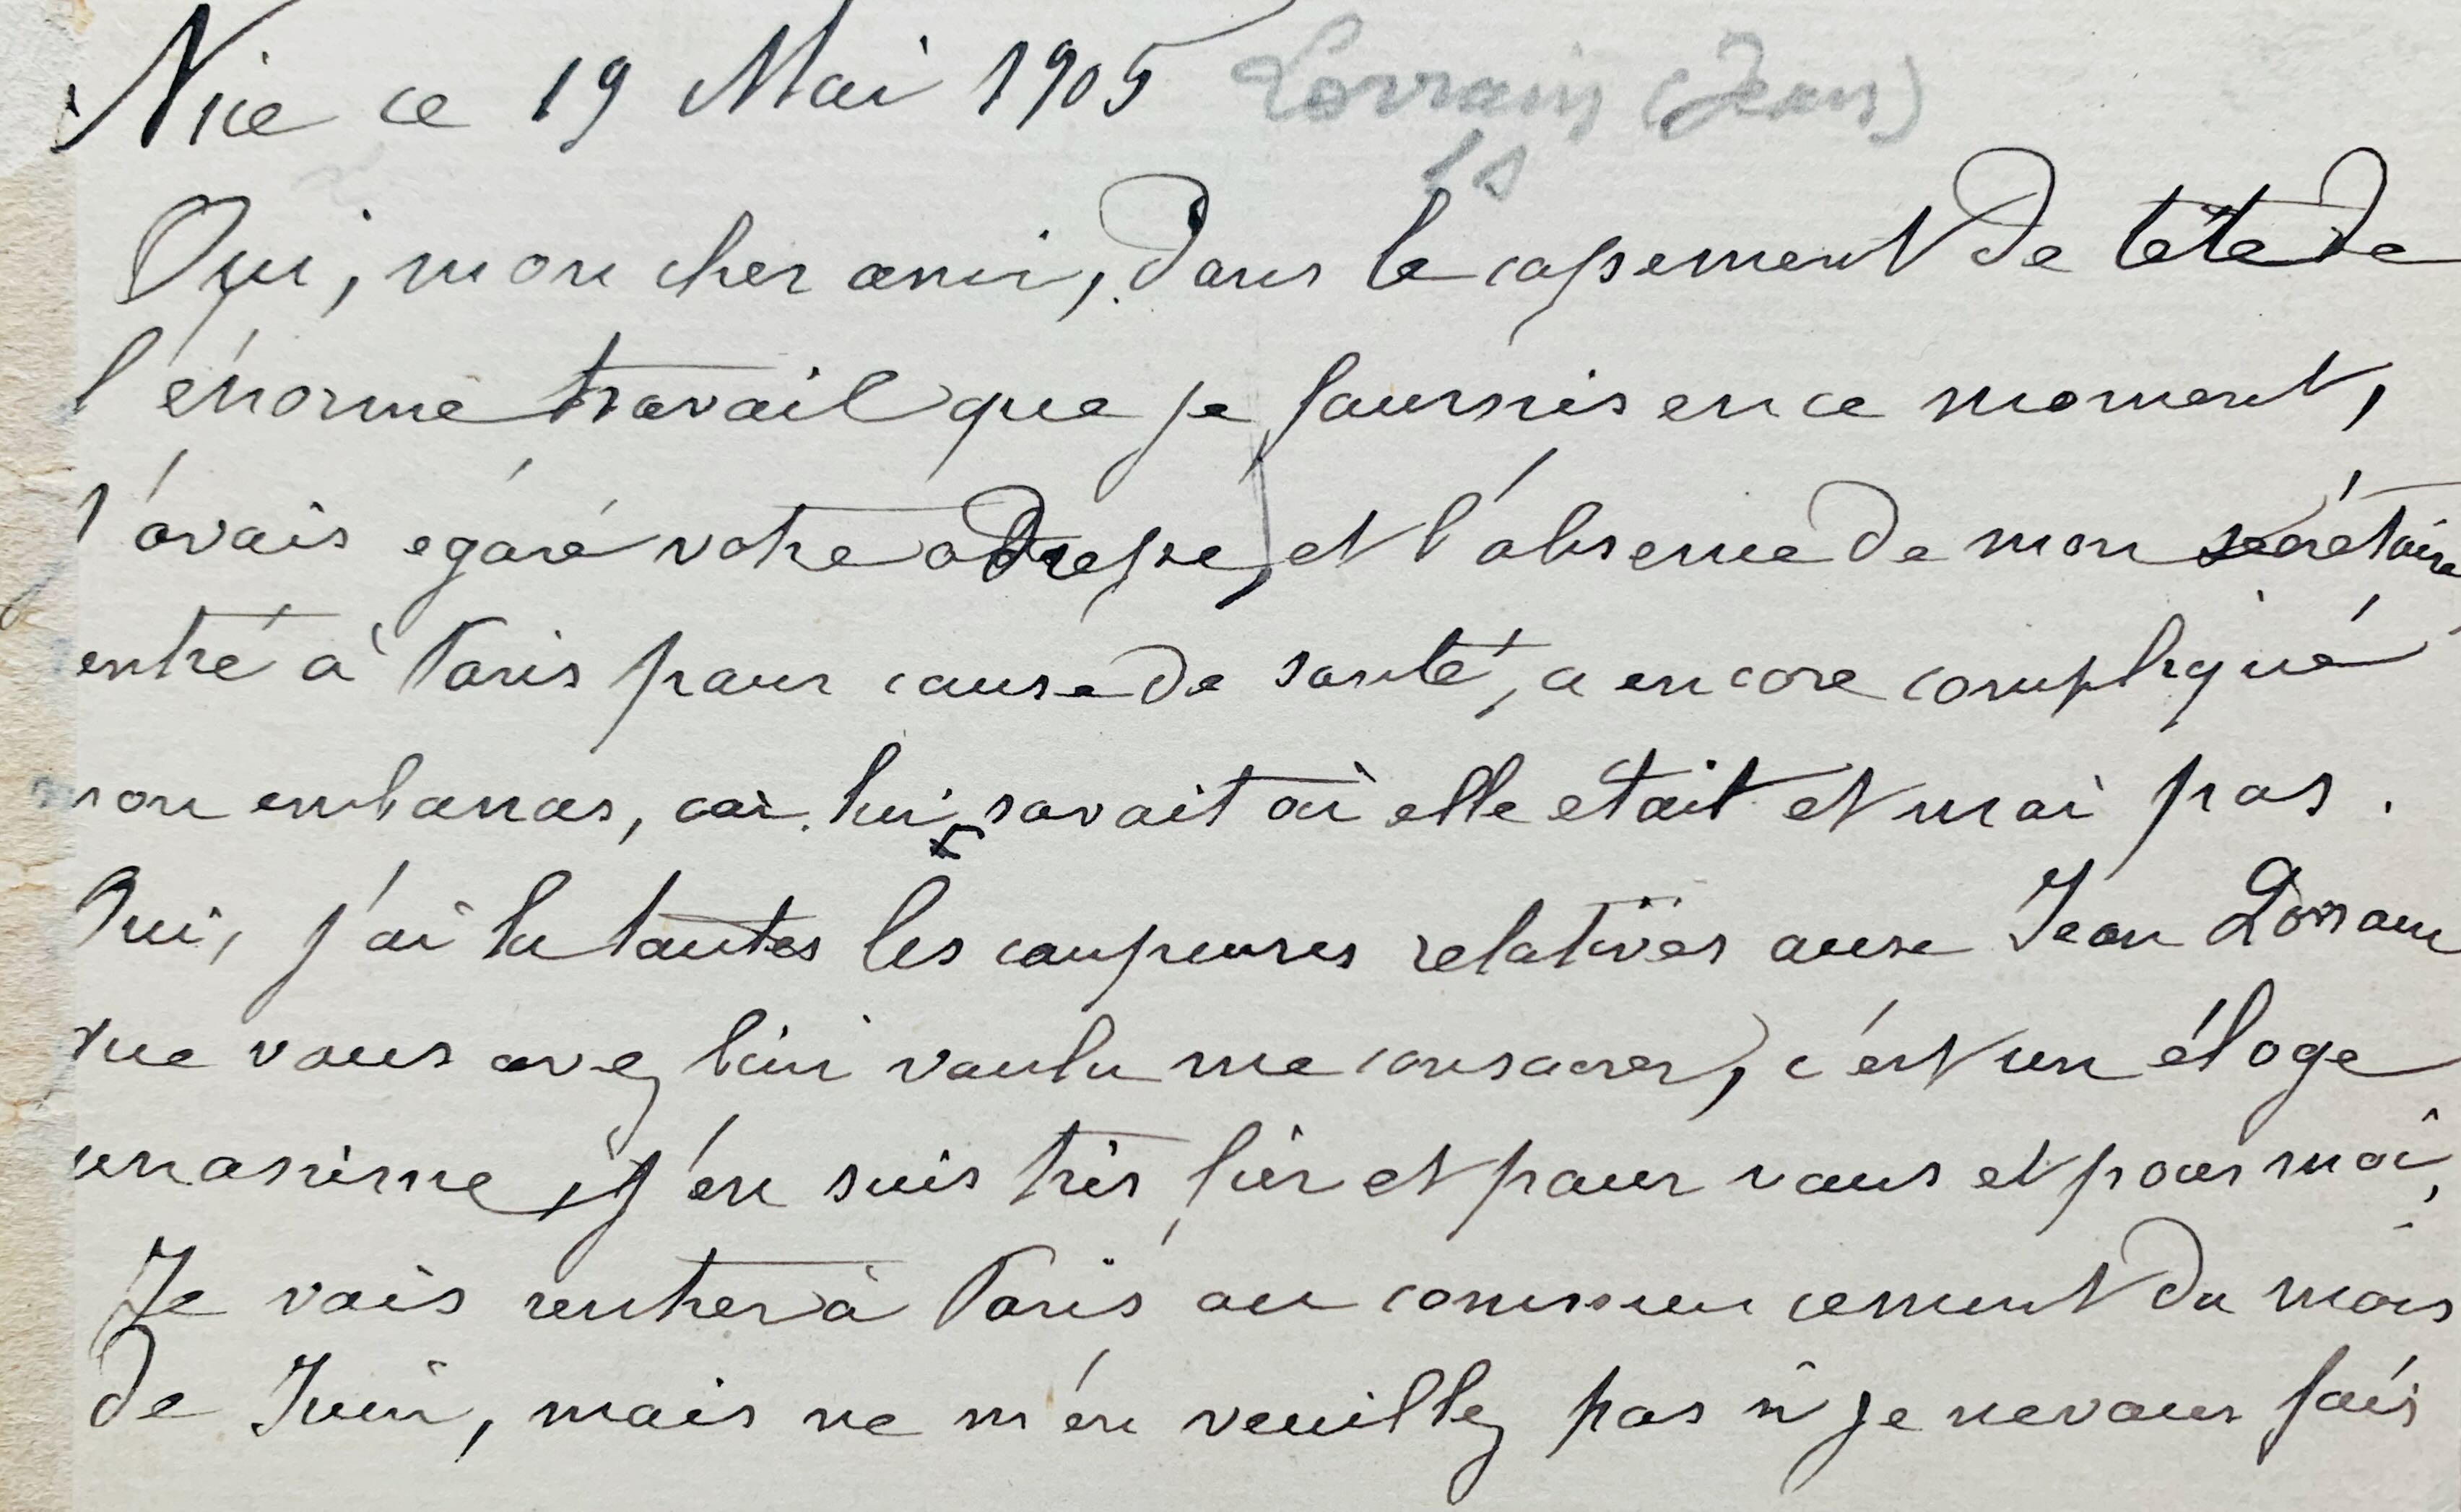 Nice ce 19 Mai 1905 Lorrain (Jean)
Ls
Oui, mon cher ami, dans le cassement de tête de
l'énorme travail que je fournis en ce moment,
j'avais egaré votre adresse, et l'absence de mon secrétaire
entré à Paris pour cause de santé, a encore compliqué
mon embarras, car lui savait où elle etait et moi pas.
Oui, j'ai lu toutes les coupures relatives aux Jean Lorrain
que vous avez bien voulu me consacrer, c'est un éloge
unanime, j'en suis très fier et pour vous et pour moi,
Je vais rentrer à Paris au commencement du mois
de Juin, mais ne m'en veuillez pas si je ne vous fais